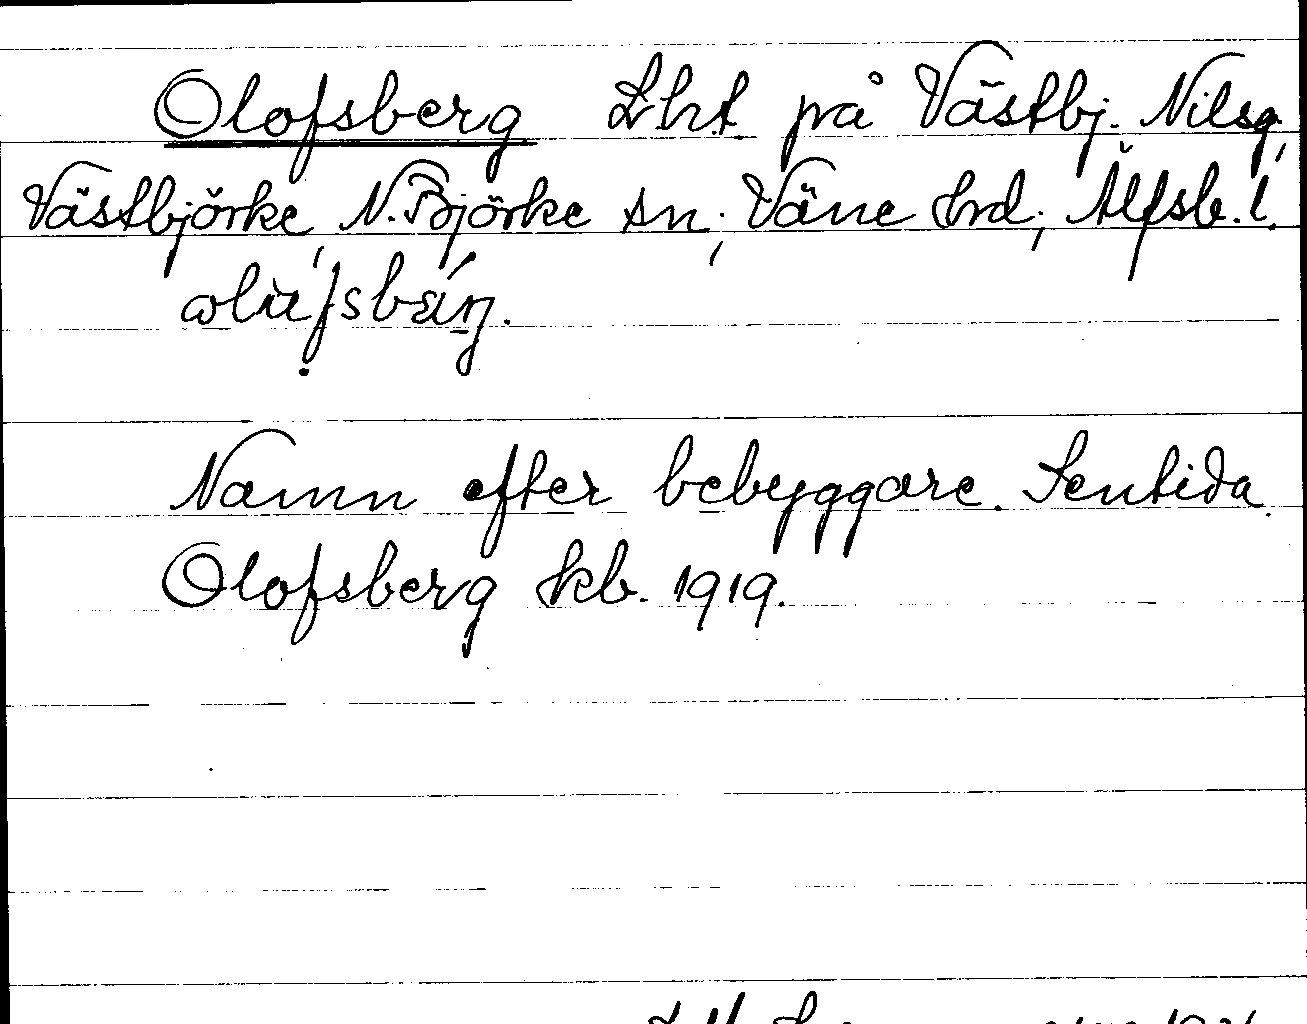 Olofsberg Lht på Västbj. Nilsg.,
Västbjörke, N. Björke sn, Väne hrd, Älfsb. l.
Namn efter bebyggare. Sentida.
Olofsberg kb. 1919.